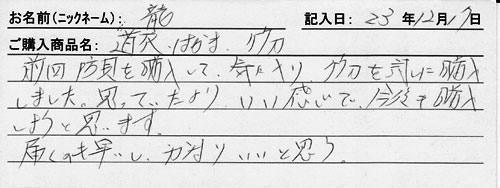 お名前(ニックネーム): 龍 記入日: 23年12月17日
ご購入商品名: 道衣、はかま、竹刀
前回防具を購入して、気に入り、竹刀を試しに購入
しました。思っていたより、いい感じで、今後も購入
しようと思います。
届くのも早いし、かなりいいと思う。